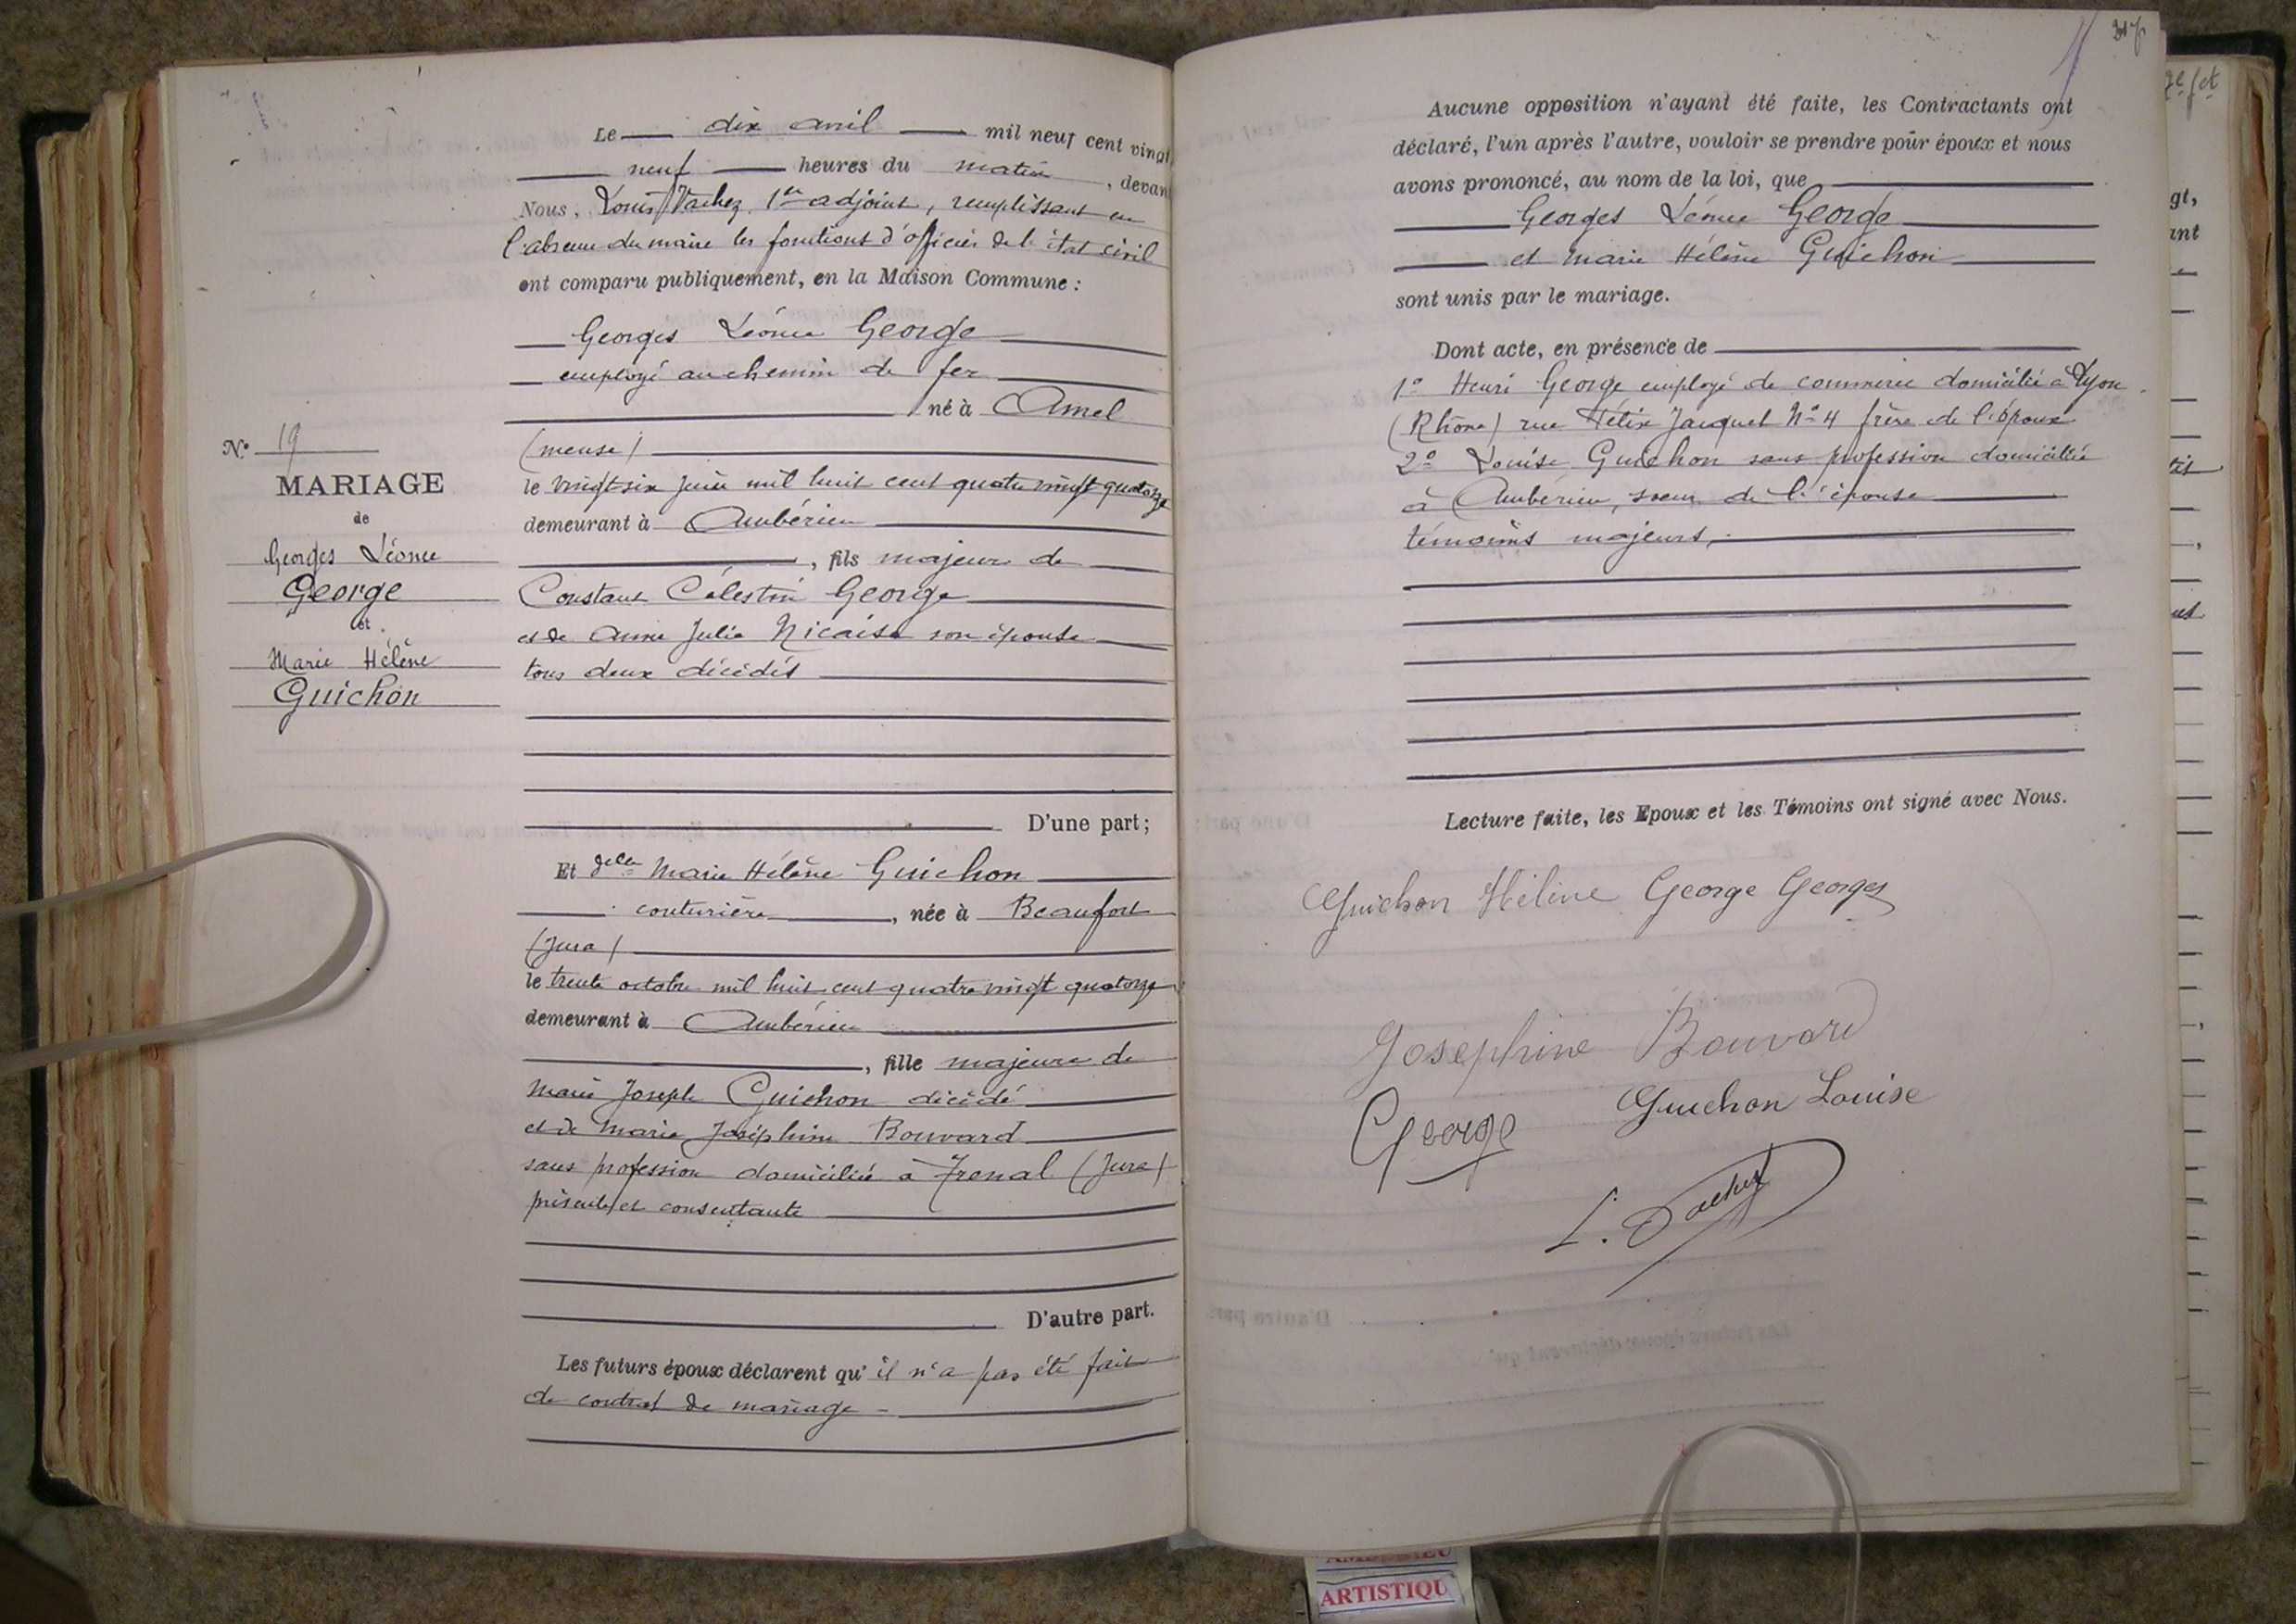 N° 19
MARIAGE
de
Georges Léonce
George
et
Marie Hélène
Guichon
Le dix avril mil neuf cent vingt
neuf heures du matin, devan
Nous, Louis Vachez 1er adjoint, remplissant en
l'absence du maire les fonctions d'officier de l'état civil
ont comparu publiquement, en la Maison Commune :
Georges Léonce George
employé au chemin de fer
né à Amel
(meuse)
le vingt-six juin mil huit cent quatre vingt quatorze
demeurant à Ambérieu
, fils majeur de
Constant Célestin George
et de Anne Julie Nicaise son épouse
tous deux décédés
D'une part;
Et delle Marie Hélène Guichon
couturière, née à Beaufort
(Jura)
le trente octobre mil huit cent quatre vingt quatorze
demeurant à Ambérieu
, fille majeure de
Marie Joseph Guichon décédé
et de Marie Joséphine Bouvard
sans profession domiciliée à Frenal (Jura)
présente et consentante
D'autre part.
Les futurs époux déclarent qu'il n'a pas été fait
de contrat de mariage -
Aucune opposition n'ayant été faite, les Contractants ont
déclaré, l'un après l'autre, vouloir se prendre pour époux et nous
avons prononcé, au nom de la loi, que
Georges Léonce George
et Marie Hélène Guichon
sont unis par le mariage.
Dont acte, en présence de
1° Henri George employé de commerce domicilié à Lyon
(Rhône) rue Félix Jacquet N° 4 frère de l'époux
2° Louise Guichon sans profession domiciliée
à Ambérieu, soeur de l'épouse
témoins majeurs.
Lecture faite, les Epoux et les Témoins ont signé avec Nous.
Guichon Hélène George Georges
Josephine Bouvard
George Guichon Louise
L. Vachez
gt,
ant
ARTISTIQU